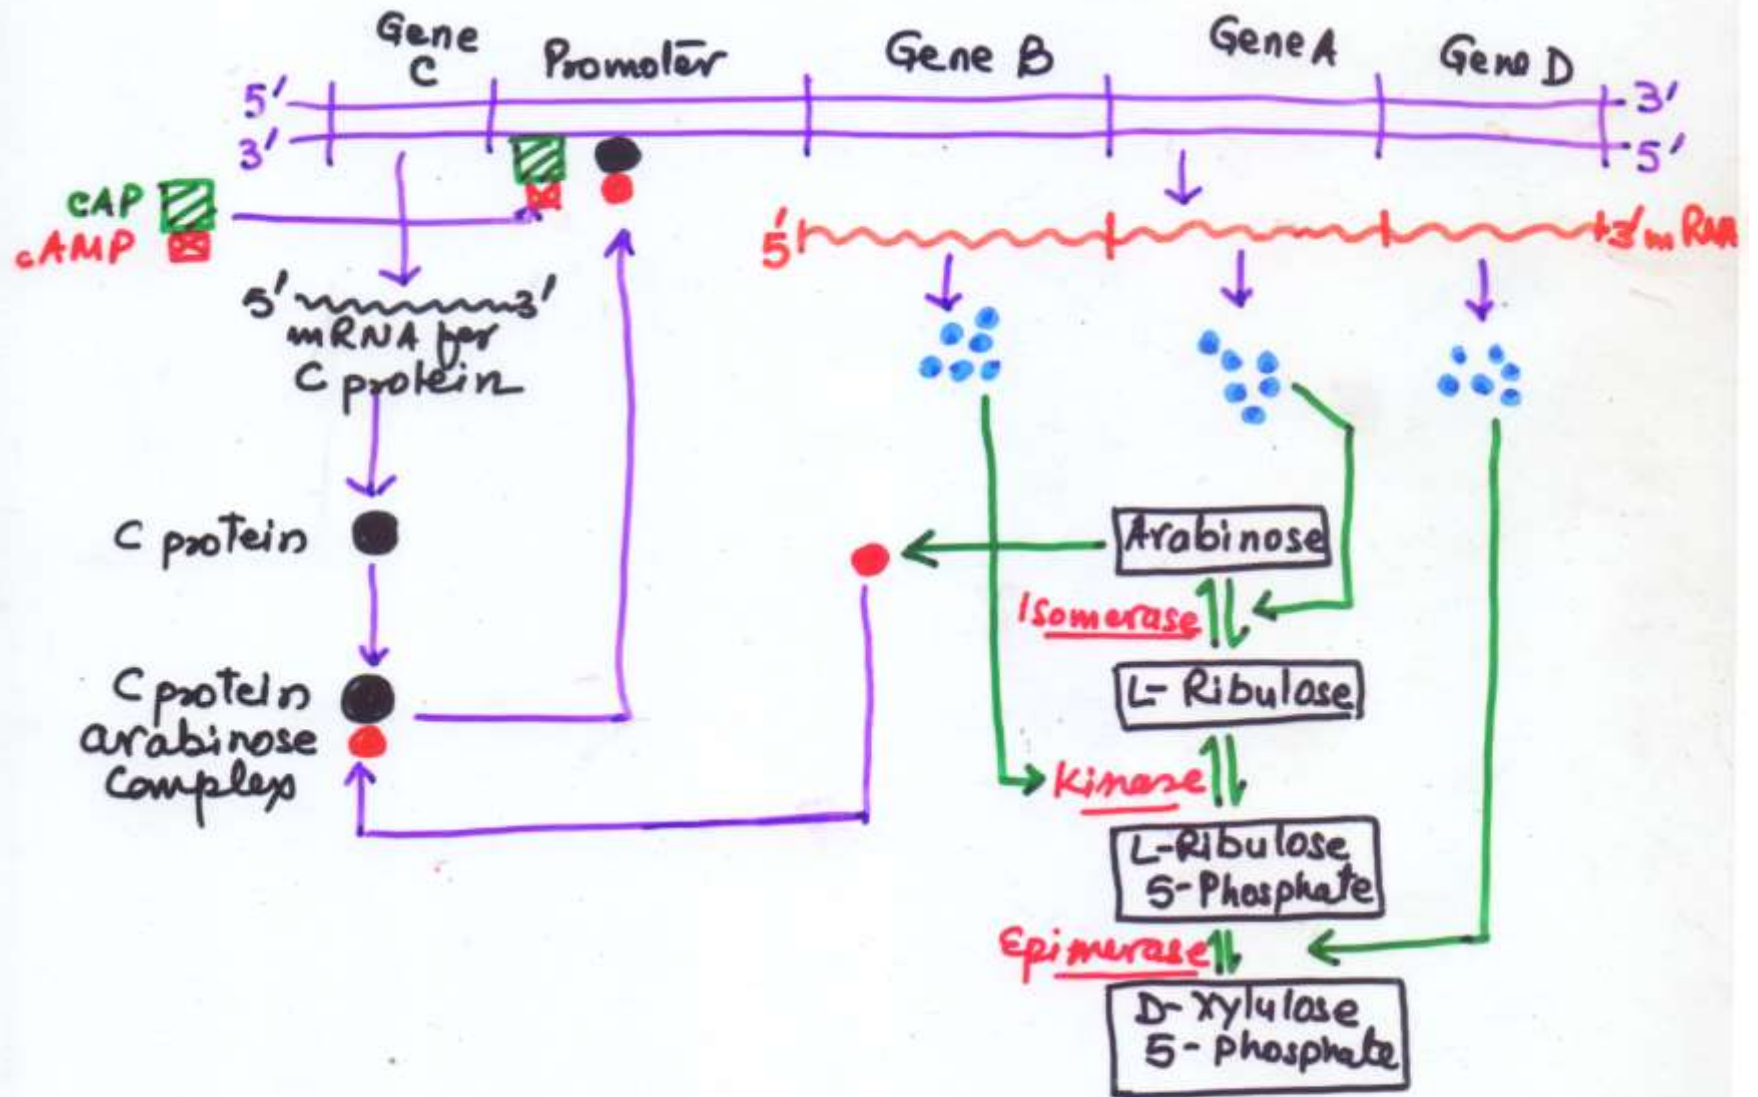 Gene
C
Promoter
Gene B
Gene A
Gene D
5' 3'
3' 5'
CAP
cAMP
5' 3' mRNA
5' 3'
mRNA for
C protein
C protein
Arabinose
Isomerase
C protein
arabinose
Complex
L- Ribulose
Kinase
L-Ribulose
5-Phosphate
Epimerase
D- Xylulose
5- phosphate